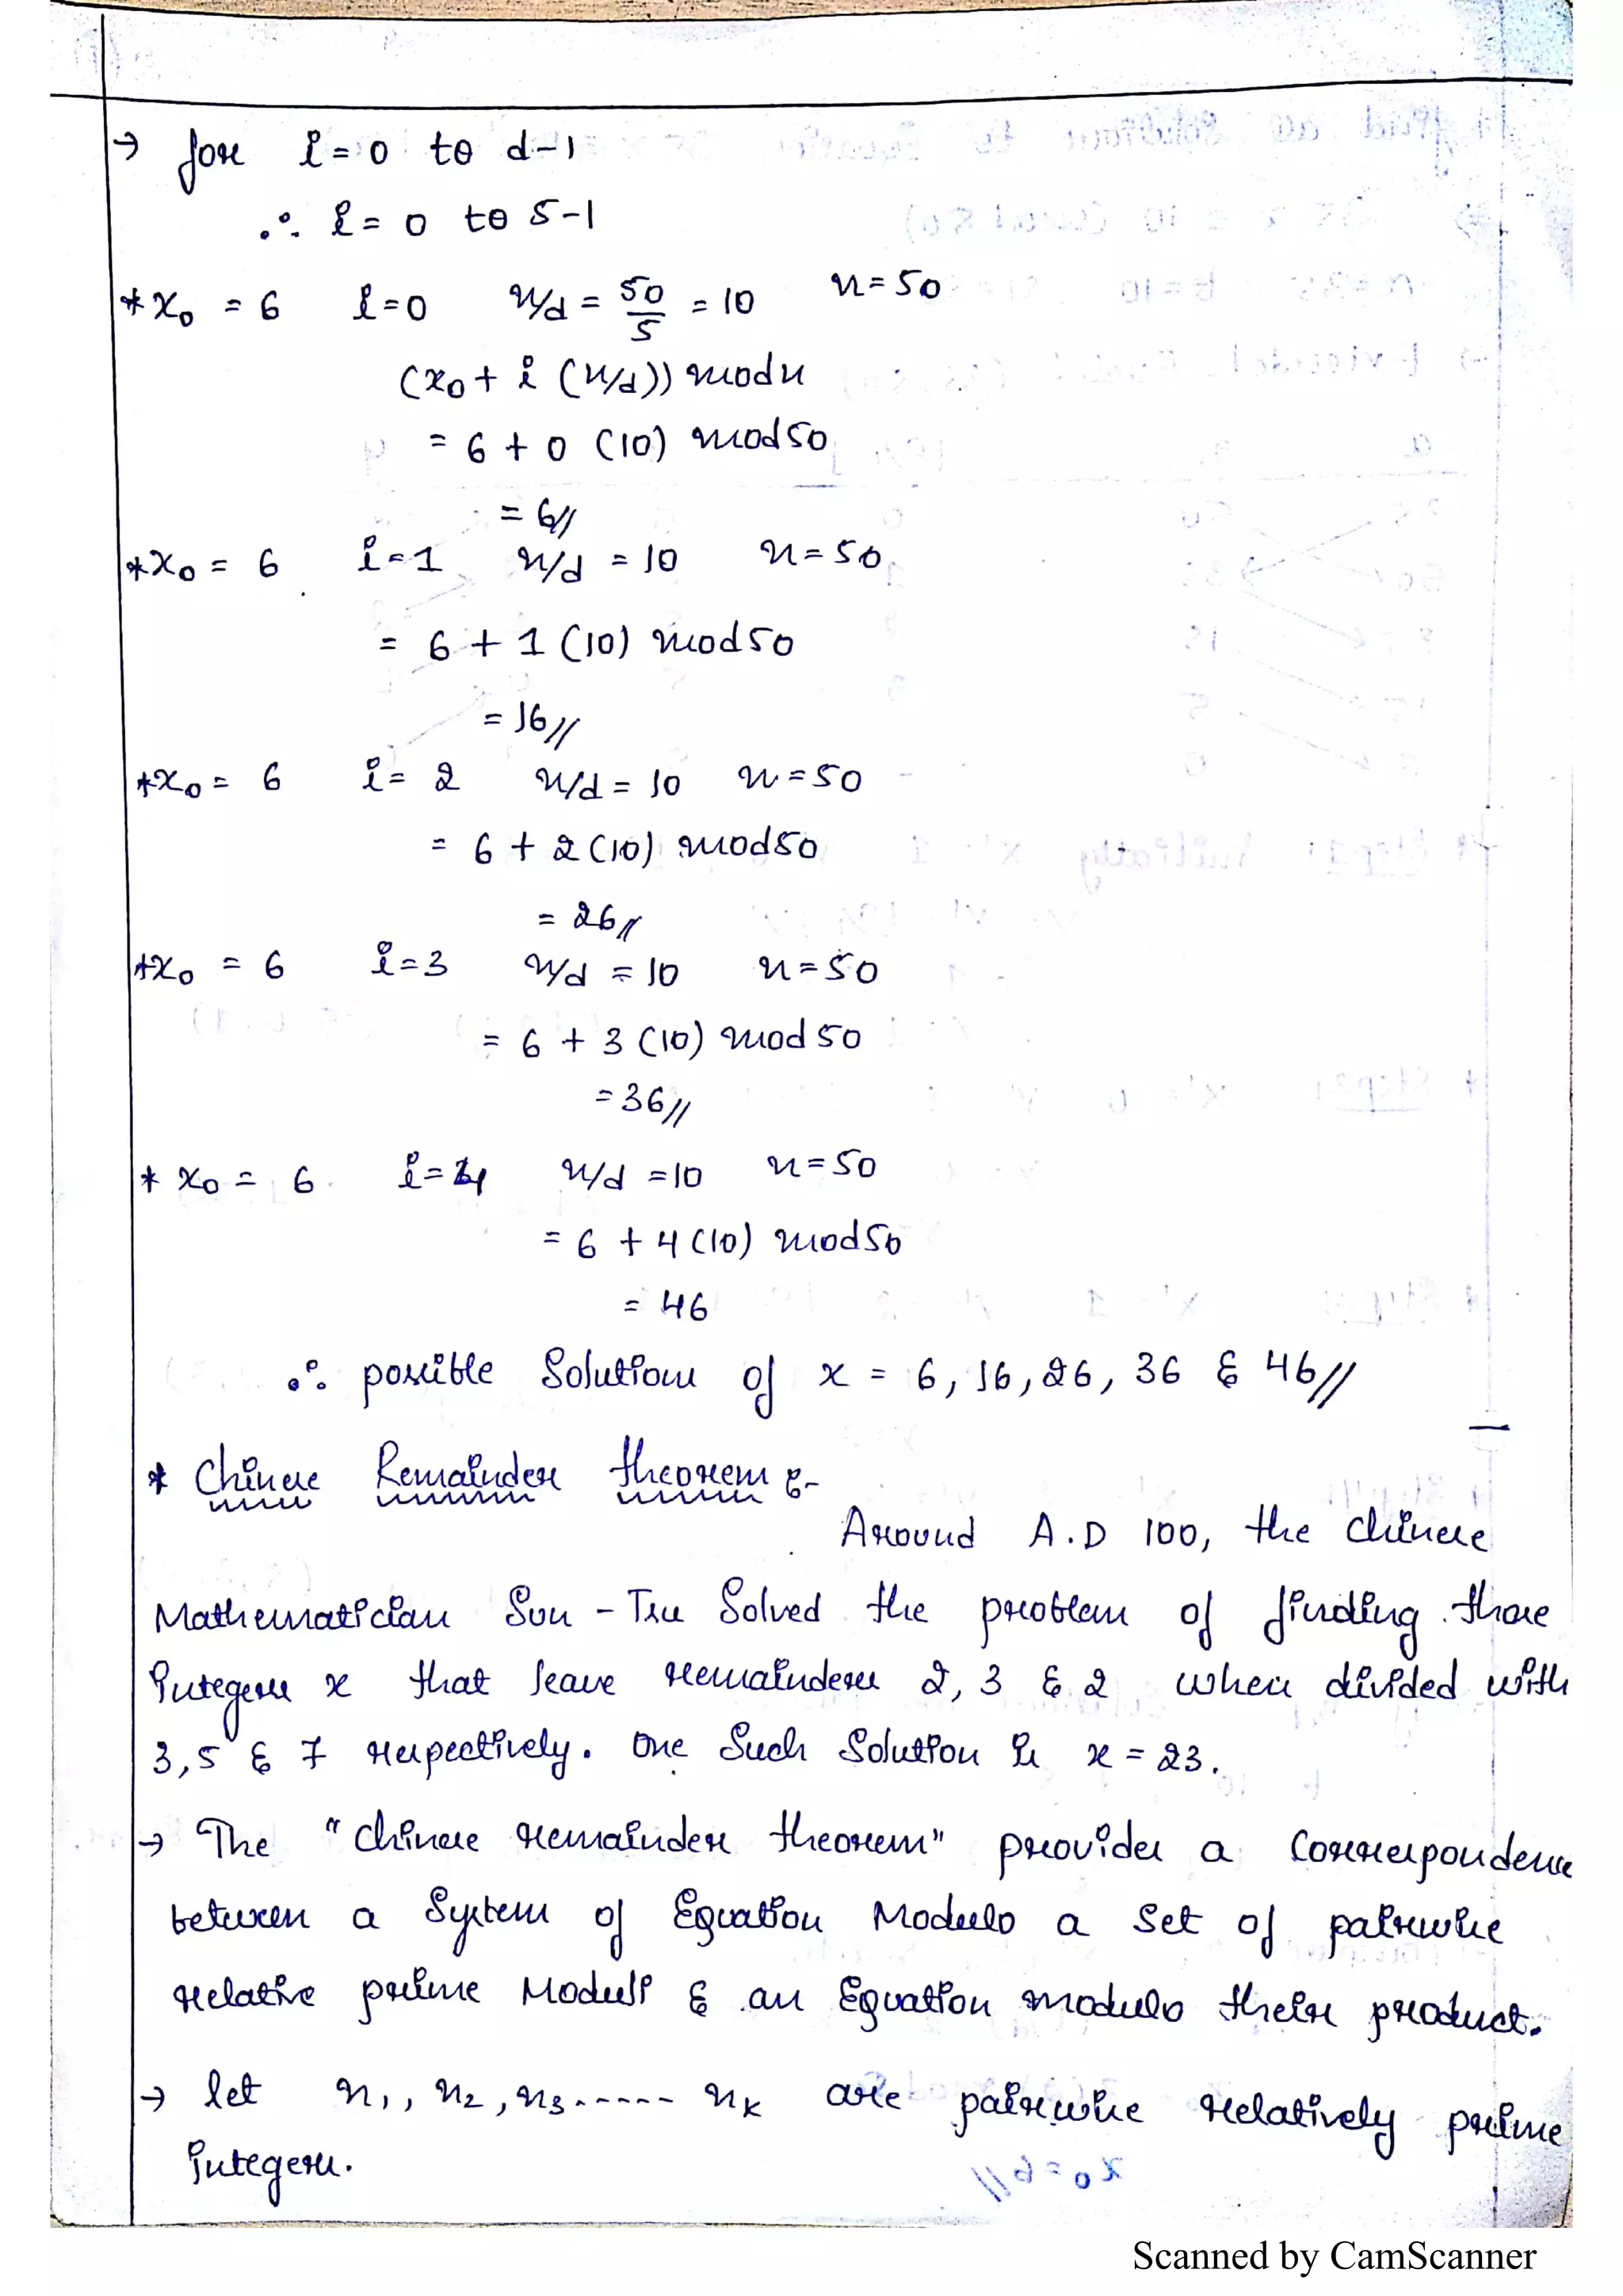 → for i = 0 to d-1
∴ i = 0 to 5-1
* x₀ = 6 i=0 n/d = 50/5 = 10 n=50
(x₀ + i (n/d)) mod n
= 6 + 0 (10) mod 50
= 6//
* x₀ = 6 i=1 n/d = 10 n=50
= 6 + 1 (10) mod 50
= 16//
* x₀ = 6 i= 2 n/d = 10 n=50
= 6 + 2 (10) mod 50
= 26//
* x₀ = 6 i=3 n/d = 10 n=50
= 6 + 3 (10) mod 50
= 36//
* x₀ = 6 i=4 n/d =10 n=50
= 6 + 4 (10) mod 50
= 46
∴ possible Solutions of x = 6, 16, 26, 36 & 46//
* Chinese Remainder theorem :-
Around A.D 100, the chinese
Mathematician Sun - Tsu Solved the problem of finding those
integers x that leave remainders 2, 3 & 2 when divided with
3, 5 & 7 respectively. One Such Solution is x = 23.
→ The "chinese remainder theorem" provides a Correspondence
between a System of Equation Modulo a Set of pairwise
relative prime Moduli & an Equation modulo their product.
→ let n₁, n₂, n₃ ...... nₖ are pairwise relatively prime
integers.
Scanned by CamScanner